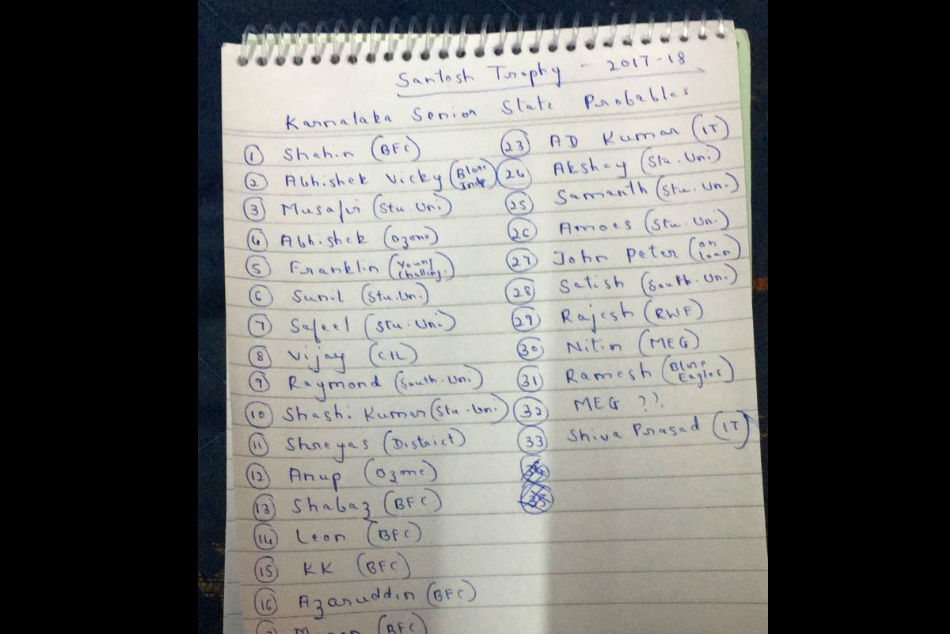 Santosh Trophy - 2017-18
Karnataka Senior State Probables
1 Shahin (BFC)
2 Abhishek Vicky (Blore Inde)
3 Musafir (Stu. Uni)
4 Abhishek (Ozone)
5 Franklin (Young Challeng.)
6 Sunil (Stu. Uni)
7 Safeel (Stu. Uni.)
8 Vijay (CIL)
9 Raymond (South. Uni)
10 Shashi Kumar (Stu. Uni.)
11 Shreyas (District)
12 Anup (Ozone)
13 Shabaz (BFC)
14 Leon (BFC)
15 KK (BFC)
16 Azaruddin (BFC)
(BFC)
23 AD Kumar (IT)
24 Akshay (Stu. Uni.)
25 Samanth (Stu. Uni)
26 Amoes (Stu. Uni)
27 John Peter (on loan)
28 Satish (South. Uni)
29 Rajesh (RWF)
30 Nitin (MEG)
31 Ramesh (Blore Eagles)
32 MEG ??
33 Shiva Prasad (IT)